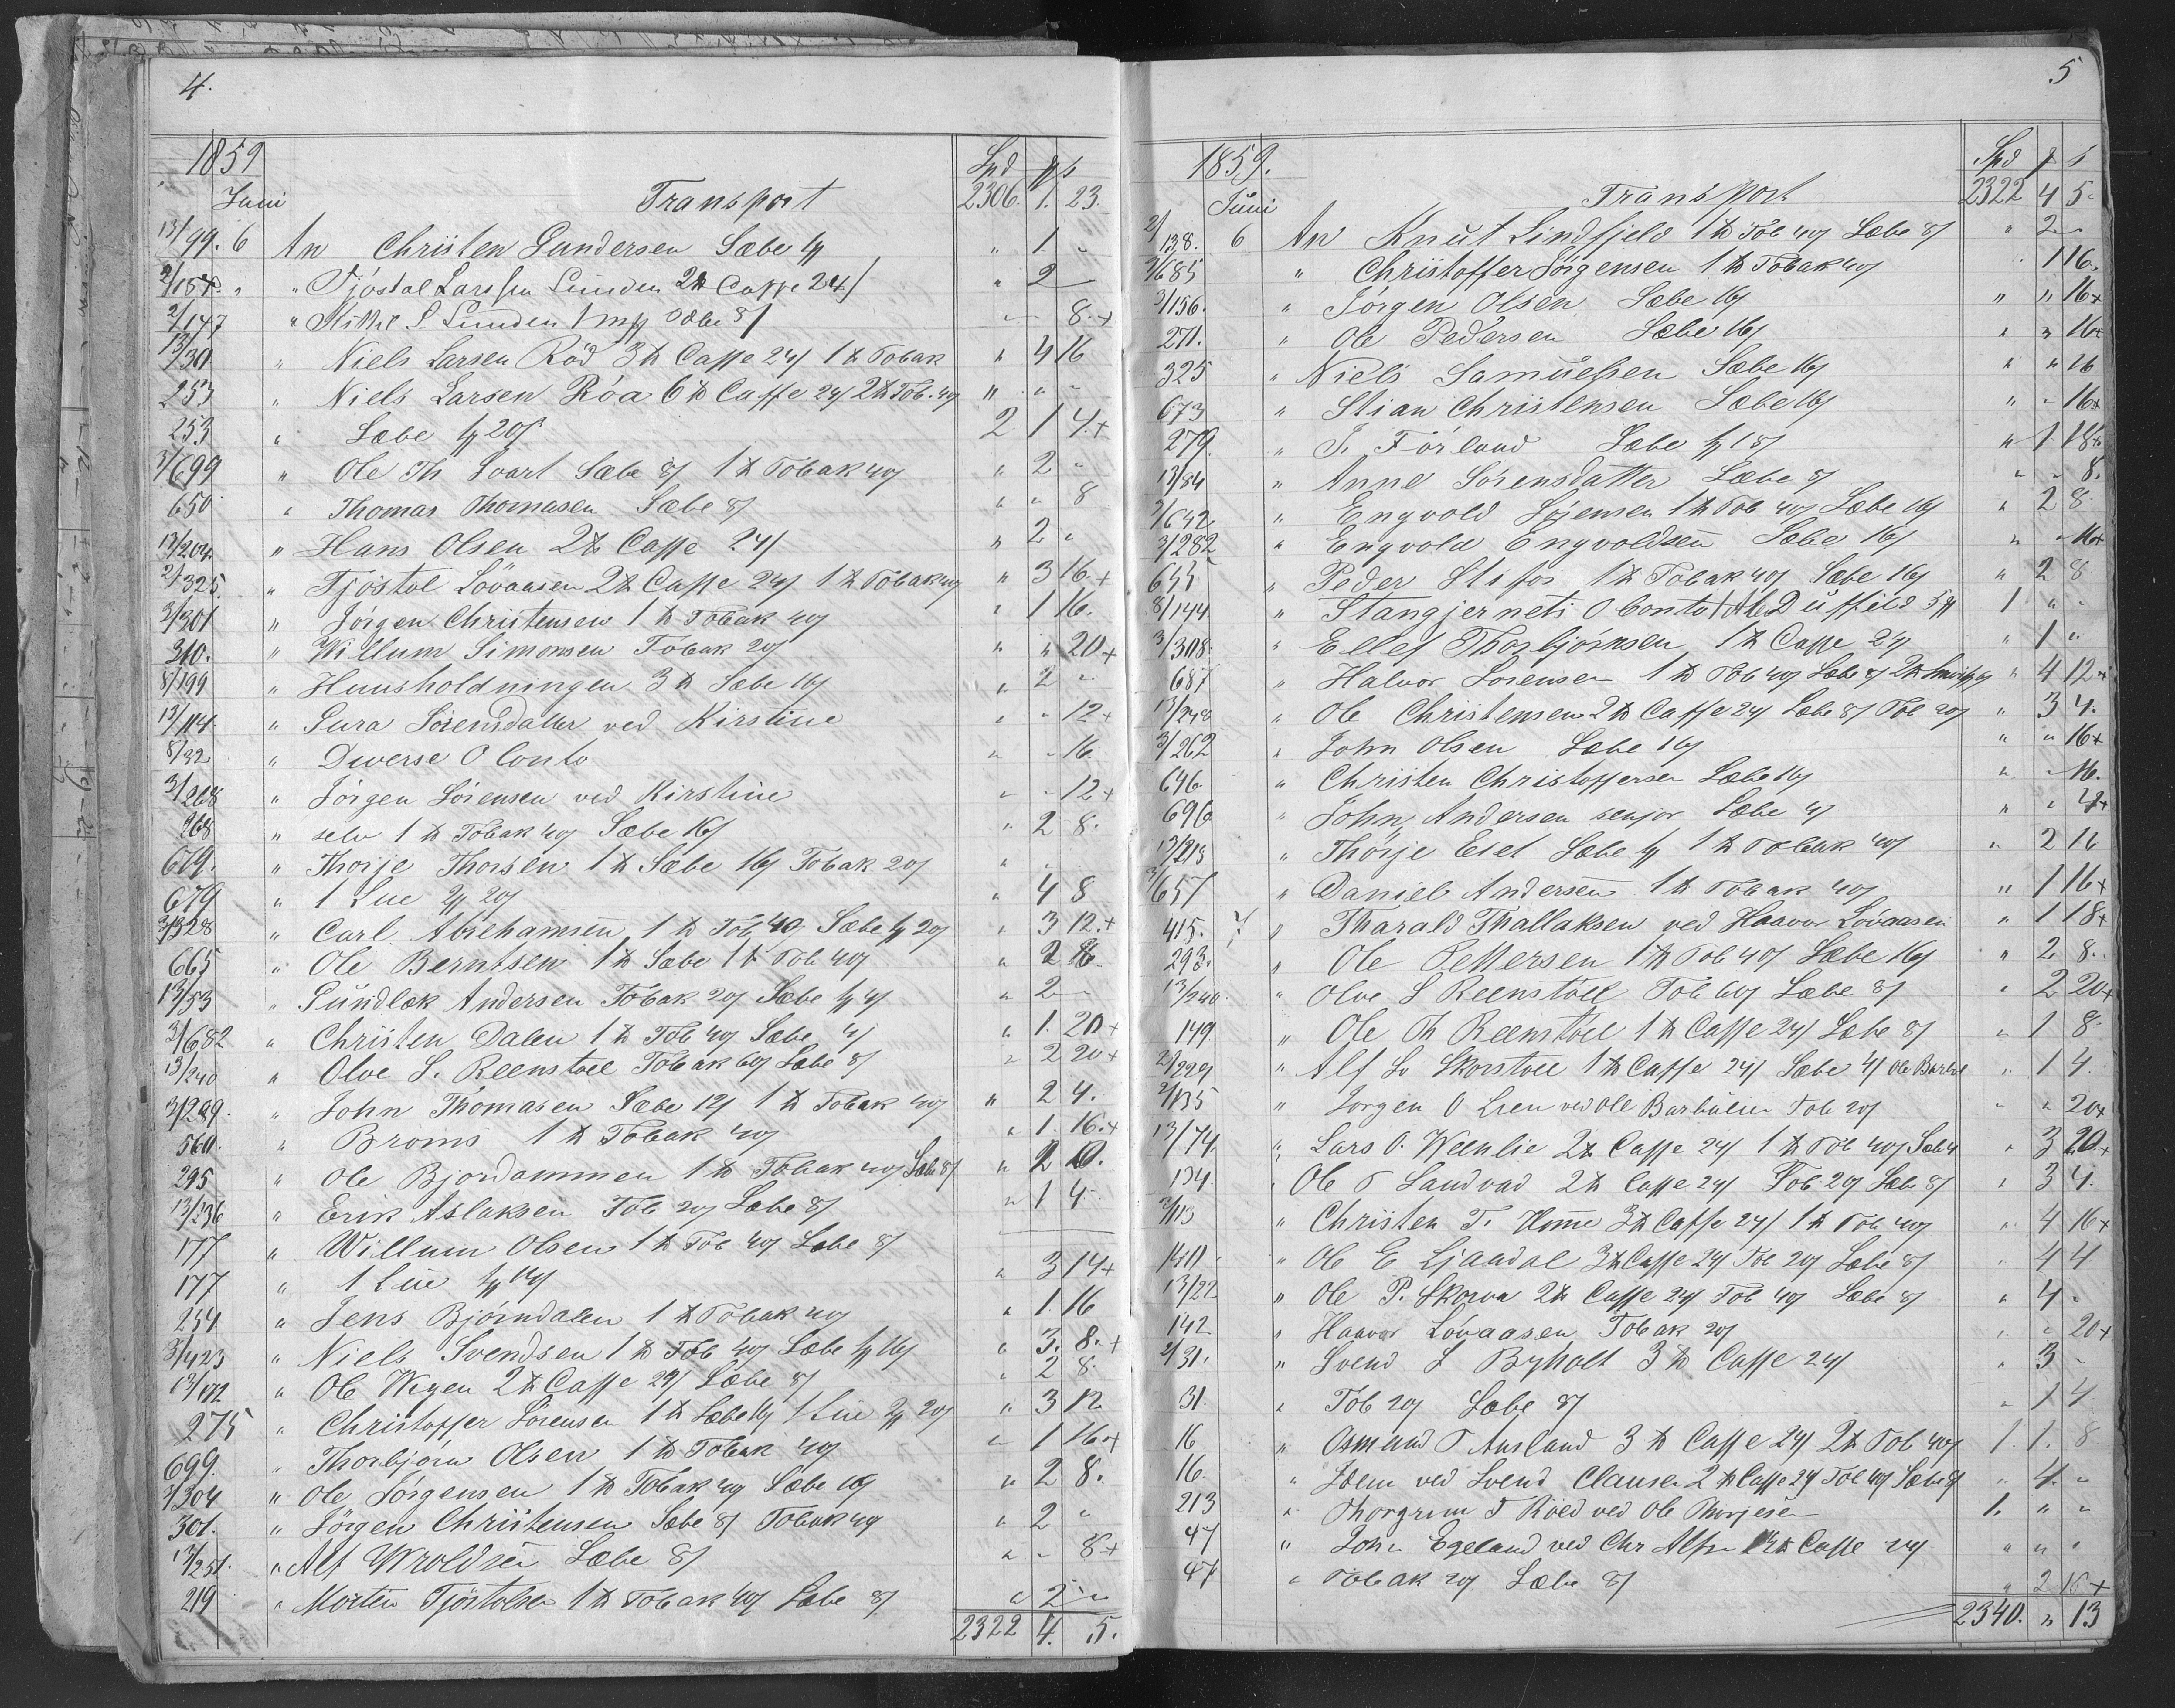 4.
1859
Spd
Juni Transport 2306. 1. 23.
13/99. 6 An Christen Gundersen Sæbe " 1 "
2/157. " " Tjöstol Larssen Lunden 2 ℔ Caffe 24/ " 2 —
2/147 " L. Lunden 8/ 8. +
13/30 " Niels Larsen Röd 3 ℔ Caffe 24/ 1 ℔ Tobak " 4 16
253 " Niels Larsen Röa 6 ℔ Caffe 24/ 2 ℔ Tob. 40/ " " "
253 " Sæbe 20/ 2 1 4. +
3/699 " Ole Th Svart Sæbe 8/ 1 ℔ Tobak 40/ " 2 "
650 " Thomas Thomasen Sæbe 8/ " " 8
13/204. " Hans Olsen 2 ℔ Caffe 24/ " 2 "
2/325. " Tjöstol Lövaasen 2 ℔ Caffe 24/ 1 ℔ Tobak 40/ " 3 16. +
3/301 " Jörgen Christensen 1 ℔ Tobak 40/ " 1 16.
310. " Willum Simonsen Tobak 20/ " " 20 +
8/199 " Huusholdningen 3 ℔ Sæbe 16/ " 2 "
13/114. " Sörensdatter ved Kirstine " " 12 +
8/32 " Diverse O Conto " " 16
3/268 " Jörgen Sörensen ved Kirstine " " 12 +
268 " selv 1 ℔ Tobak 40/ Sæbe 16/ " 2 8.
679. " Thorje Thorsen 1 ℔ Sæbe 16/ Tobak 20/ " "
679 " 1 Lue 20/ " 4 8
3/328 " Carl Abrehamsen 1 ℔ Tob 40/ Sæbe 20/ " 3 12. +
665 " Ole Berntsen 1 ℔ Sæbe 1 ℔ Tob 40/ " 2
13/53 " Gundlek Andersen Tobak 20/ Sæbe 4/ " 2 —
3/682 " Christen Dalen 1 ℔ Tob 40/ Sæbe 4/ " 1. 20 +
13/240 " Olve S. Reenstoel Tobak 60/ Sæbe 8/ " 2 20 +
3/299. " John Thomasen Sæbe 12/ 1 ℔ Tobak 40/ " 2 4.
560. " Broms 1 ℔ Tobak 40/ " 1. 16. +
295 " Ole Bjordammen 1 ℔ Tobak 40/ Sæbe 8/ " 2
13/236 " Erik Aslaksen Tob 20/ Sæbe 8/ " 1 4
177 " Willum Olsen 1 ℔ Tob 40/ Sæbe 8/
177 " 1 Lue " 3 14 +
254 " Jens Björndalen 1 ℔ Tobak 40/ " 1. 16
3/423 " Niels Svendsen 1 ℔ Tob 40/ Sæbe 16/ " 3. 8. +
13/172 " Ole Wegen 2 ℔ Caffe 24/ Sæbe 8/ " 2 8.
275 " Christoffer Sörensen 1 ℔ Sæbe 16/ 1 Lue 20/ " 3 12
699. " Thorbjörn Olsen 1 ℔ Tobak 40/ " 1 16. +
3/304 " Ole Jörgensen 1 ℔ Tobak 40/ Sæbe 16/ " 2 8.
301. " Jörgen Christensen Sæbe 8/ Tobak 40/ " 2 "
13/251. " Alf Wroldsen Sæbe 8/ " " 8 +
219 " Morten Tjöstolsen 1 ℔ Tobak 40/ Sæbe 8/ " 2 "
2322 4. 5.
5
1859.
Spd
Juni Transport 2322 4 5
2/138. 6 An Knut Lindfjeld 1 ℔ Tob 40/ Sæbe 8/ " 2 —
3/685 " Christoffer Jörgensen 1 ℔ Tobak 40/ " 1 16.
3/156. " Jörgen Olsen Sæbe 16/ " " 16 +
271. " Ole Pedersen Sæbe 16/ " " 16 +
325 " Niels Samuelsen Sæbe 16/ " " 16
673 " Stian Christensen Sæbe 16/ " " 16 +
279. " J. Förland Sæbe 18/ " 1 18 +
13/84 " Anne Sörensdatter Sæbe 8/ " " 8.
3/642 " Engvold Jörgensen 1 ℔ Tob 40/ Sæbe 16/ " 2 8
3/282 " Engvold Engvoldsen Sæbe 16/ " " 16 +
655 " Peder Stifos 1 ℔ Tobak 40/ Sæbe 16/ " 2 8
8/144. " Stangjernets O Conto 1 " "
3/308. " Ellef Thorbjörnsen 1 ℔ Caffe 24/ " 1 "
687 " Halvor Sörensen 1 ℔ Tob 40/ Sæbe 8/ " 4 12 +
13/248 " Ole Christensen 2 ℔ Caffe 24/ Sæbe 8/ Tob 20/ " 3 4.
3/262 " John Olsen Sæbe 16/ " " 16 +
646. " Christen Christoffersen Sæbe 16/ " " 16.
696 " John Andersen senjor Sæbe 4/ " " 4 +
13/213 " Thorje Eset Sæbe 1 ℔ Tobak 40/ " 2 16
3/657 " Daniel Andersen 1 ℔ Tobak 40/ " 1 16 +
415. 7 " Tharald Thallaksen ved Haavor Lövaasen " 1 18 +
293. " Ole Pettersen 1 ℔ Tob 40/ Sæbe 16/ " 2 8.
13/240. " Olve S Reenstoel Tob 60/ Sæbe 8/ " 2 20 +
149 " Ole Th Reenstoel 1 ℔ Caffe 24/ Sæbe 8/ " 1 8
2/229 " Alf Skorstoel 1 ℔ Caffe 24/ Sæbe 4/ Ole " 1 4.
2/135 " Jorgen O Lien ved Ole Barbulien Tob 20/ " " 20 +
13/74 " Lars O. Weenlie 2 ℔ Caffe 24/ 1 ℔ Tob 40/ Sæbe " 3 20 +
134 " Ole T Landvad 2 ℔ Caffe 24/ Tob 20/ Sæbe 8/ " 3 4.
2/113 " Christen T. Homme 3 ℔ Caffe 24/ 1 ℔ Tob 40/ " 4 16 +
140 " Ole E Ljaadal 3 ℔ Caffe 24/ Tob 20/ Sæbe 8/ " 4 4
13/22 " Ole P. Skorva 2 ℔ Caffe 24/ Tob 40/ Sæbe 8/ " 4 "
142 " Haavor Lövaasen Tobak 20/ " " 20 +
2/31. " Svend S Byholt 3 ℔ Caffe 24/ " 3 "
31. " Tob 20/ Sæbe 8/ " 1 4
16 " Osmund T Ausland 3 ℔ Caffe 24/ 2 ℔ Tob 40/ 1. 1. 8
16. " ved Svend Clausen 2 ℔ Caffe 24/ Tob 40/ Sæbe 8/ " 4. "
213 " Thorgrim T Röed ved Ole Thorjesen 1. " "
47 " John Egeland ved Chr Alfsen Caffe 24/ " " "
47 " Tobak 20/ Sæbe 8/ " 2 16 +
2340. " 13